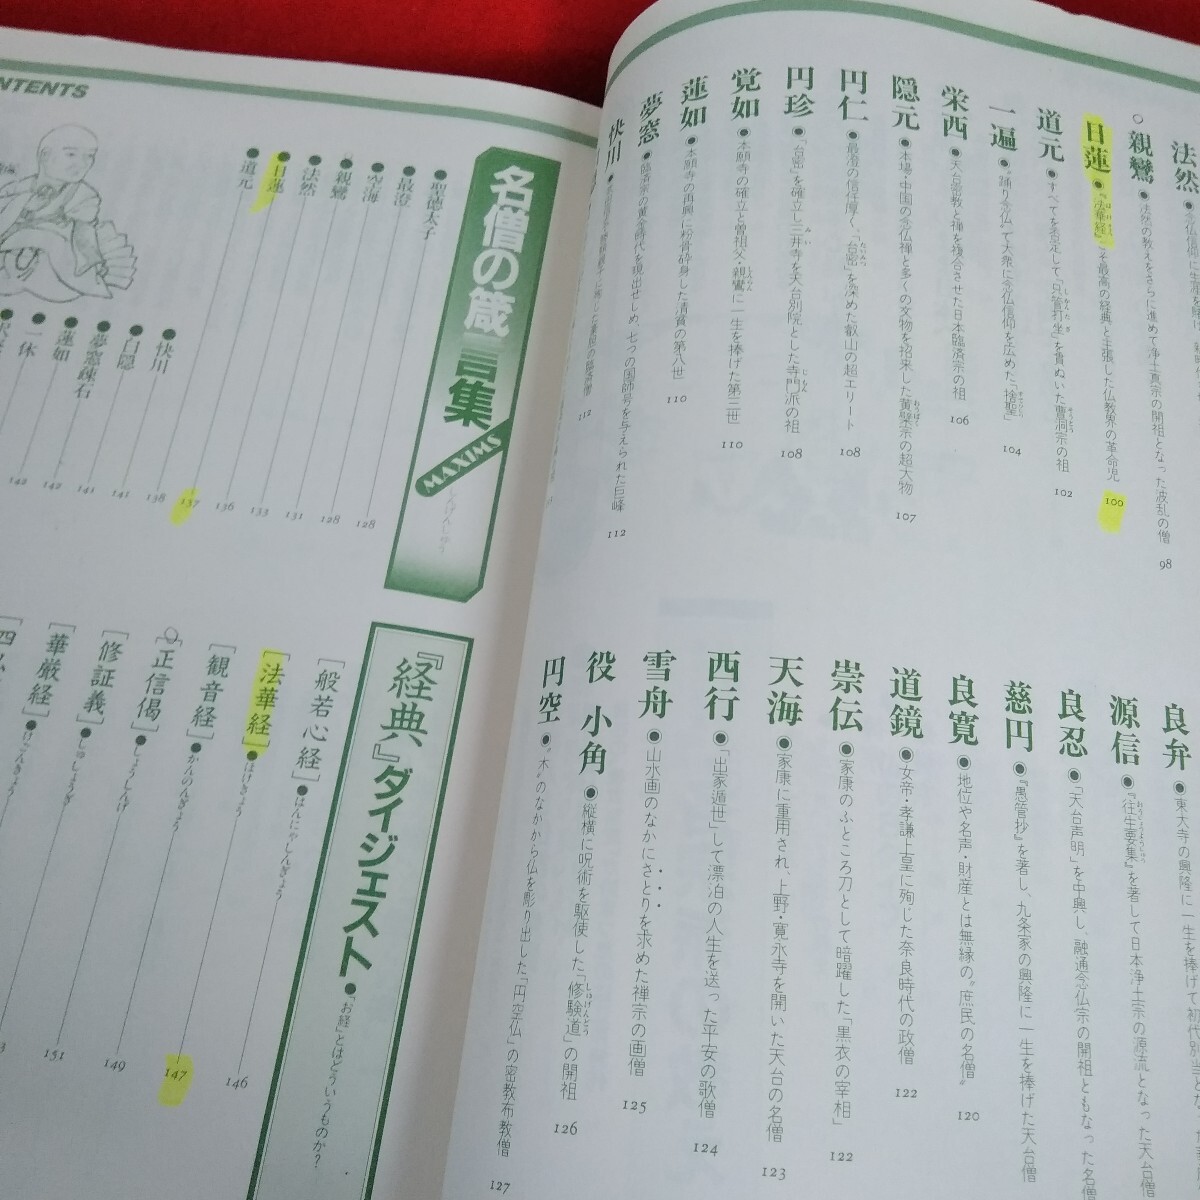 法然
親鸞●法然の教えをさらに進めて浄土真宗の開祖となった波乱の僧 98
日蓮●『法華経』こそ最高の経典と主張した仏教界の革命児 100
道元●すべてを否定して「只管打坐」を貫ぬいた曹洞宗の祖 102
一遍●"踊り念仏"で大衆に念仏信仰を広めた「捨聖」 104
栄西●天台密教と禅を複合させた日本臨済宗の祖 106
隠元●本場・中国の念仏禅と多くの文物を招来した黄檗宗の超大物 107
円仁●最澄の信任厚く、「台密」を深めた叡山の超エリート 108
円珍●「台密」を確立し三井寺を天台別院とした寺門派の祖 108
覚如●本願寺の確立と曽祖父・親鸞に一生を捧げた第三世 110
蓮如●本願寺の再興に粉骨砕身した清貧の第八世 110
夢窓●臨済宗の黄金時代を現出せしめ、七つの国師号を与えられた巨峰 112
快川 112
良弁●東大寺の興隆に一生を捧げて初代別
源信●『往生要集』を著して日本浄土宗の源流となった天台僧
良忍●「天台声明」を中興し、融通念仏宗の開祖ともなった名僧
慈円●『愚管抄』を著し、九条家の興隆に一生を捧げた天台僧
良寛●地位や名声・財産とは無縁の"庶民の名僧" 120
道鏡●女帝・孝謙上皇に殉じた奈良時代の政僧 122
崇伝●家康のふところ刀として暗躍した「黒衣の宰相」 122
天海●家康に重用され、上野・寛永寺を開いた天台の名僧 123
西行●「出家遁世」して漂泊の人生を送った平安の歌僧 124
雪舟●山水画のなかにさとりを求めた禅宗の画僧 125
役 小角●縦横に呪術を駆使した「修験道」の開祖 126
円空●"木"のなかから仏を彫り出した「円空仏」の密教布教僧 127
CONTENTS
名僧の箴言集
MAXIMS
しんげんしゅう
●聖徳太子 128
●最澄 128
●空海 131
●親鸞 133
●法然 136
●日蓮 137
●道元 138
●快川 141
●白隠 141
●夢窓疎石 142
●蓮如 142
●一休
『経典』ダイジェスト●「お経」とはどういうものか?
[般若心経]●はんにゃしんぎょう 146
[法華経]●ほけきょう 147
[観音経]●かんのんぎょう 149
[正信偈]●しょうしんげ 151
[修証義]●しゅしょうぎ
[華厳経]●けごんきょう